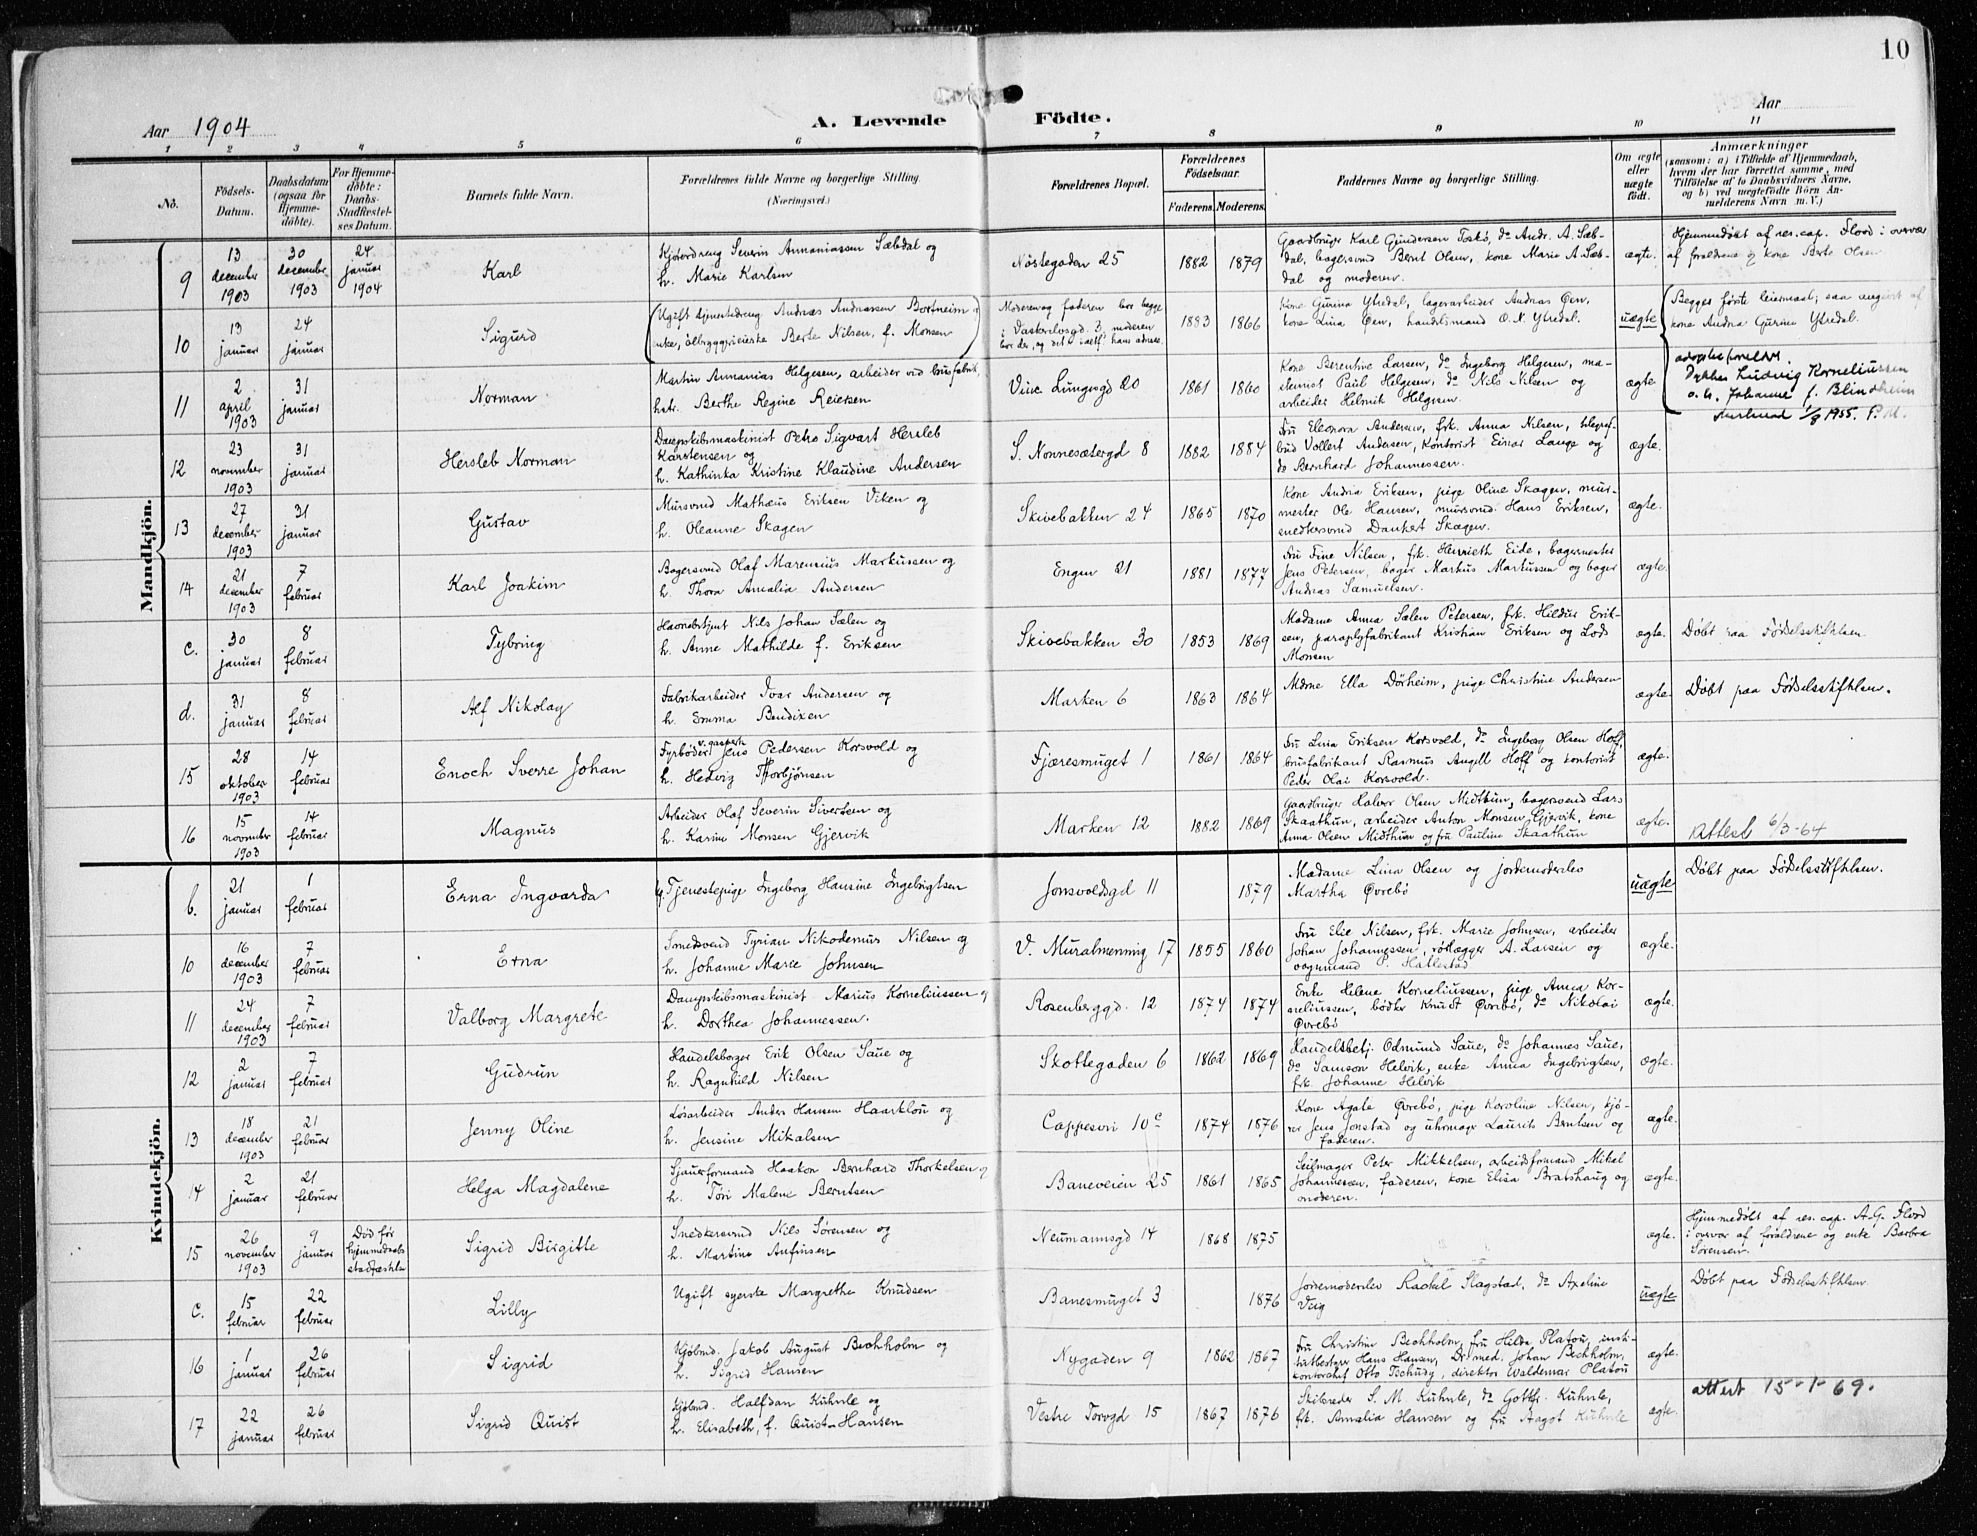 10
Aar 1904
A. Levende Födte.
Aar
1 2 3 4 5 6 7 8 9 10 11
No.
Födsels-Datum.
Daabsdatum (ogsaa for Hjemme-döbte).
For Hjemme-döbte: Daabs-Stadfæstel-ses Datum.
Barnets fulde Navn.
Forældrenes fulde Navne og borgerlige Stilling.
(Næringsvei.)
Forældrenes Bopæl.
Forældrenes Födselsaar.
Faderens. Moderens.
Faddernes Navne og borgerlige Stilling.
Om ægte eller uægte födt.
Anmærkninger
(saasom: a) i Tilfælde af Hjemmedaab,
hvem der har forrettet samme, med
Tilföielse af to Daabsvidners Navne,
og b) ved uægtefödte Börn An-
melderens Navn m. V.)
Mandkjön.
9
13 december 1903
30 december 1903
24 januar 1904
Karl
Kjøredreng Severin Annaniassen Sæbdal og
h. Marie Karlsen
Nøstegaden 25
1882 1879
Gaardbruger Karl Gundersen Toskø, do Andr. A. Sæb-
dal, bagersvend Bernt Olsen, kone Marie A. Sæb-
dal og moderen.
ægte.
Hjemmedøbt af res. cap. Flood i overvær
af forældrene og kone Berte Olsen
10
13 januar
24 januar
Sigurd
Ugift tjenestedreng Andreas Andreassen Bortneim og
enke, ølbryggeriarbeiderske Berte Nilsen, f. Monsen
Moderen og faderen bor begge
1883 1866
Kone Gurina Ytredal, lagerarbeider Andreas Øen,
kone Lina Øen, handelsmand O. N. Ytredal.
uægte
Begges første leiermaal; saa angivet af
kone Andrea Gurine Ytredal.
11
2 april 1903
31 januar
Norman
Martin Annanias Helgesen, arbeider ved brusfabrik,
hstr. Berthe Regine Reiersen
Vine Lungegd 20
1861 1860
Kone Berentine Larsen, do Ingeborg Helgesen, ma-
skinist Paul Helgesen, do Nils Nilsen og
arbeider Helmik Helgesen.
ægte
adoptivforeldre.
Dykker Ludvig Korneliussen
o. h. Johanne f. Blindheim
1/8 1955. P.M.
12
23 november 1903
31 januar
Hersleb Norman
Dampskibsmaskinist Petro Sigvart Hersleb
Karstensen og
h. Kathinka Kristine Klaudine Andersen
S. Nonnesætergd 8
1882 1884
Fru Eleonora Andersen, frk. Anna Nilsen, telegraf-
bud Vollert Andersen, kontorist Einar Lange og
do Bernhard Johannessen.
ægte.
13
27 december 1903
31 januar
Gustav
Mursvend Mathæus Eriksen Viken og
h. Oleanne Skagen
Skivebakken 24
1865 1870
Kone Andria Eriksen, pige Oline Skagen, mur-
mester Ole Hansen, mursvend Hans Eriksen,
snedkersvend Dankert Skagen.
ægte.
14
21 december 1903
7 februar
Karl Joakim
Bagersvend Olaf Marenius Markussen og
h. Thora Amalia Andersen
Engen 21
1881 1877
Fru Fine Nilsen, frk. Henrieth Eide, bagermester
Jens Petersen, bager Markus Markussen og bager
Andreas Samuelsen.
ægte.
c.
30 januar
8 februar
Tybring
Havnebetjent Nils Johan Sælen og
h. Anne Mathilde f. Eriksen
Skivebakken 30
1853 1869
Madame Anna Sælen Petersen, frk. Hildur Erik-
sen, paraplyfabrikant Kristian Eriksen og Lods
Monsen
ægte.
Døbt paa Fødselsstiftelsen
d.
31 januar
8 februar
Alf Nikolay
Fabrikarbeider Ivar Andersen og
h. Emma Bendixen
Marken 6
1863 1864
Mdme Ella Dørheim, pige Christine Andersen
ægte.
Døbt paa Fødselsstiftelsen.
15
28 oktober 1903
14 februar
Enoch Sverre Johan
Fyrbøder v. gasverk Jens Pedersen Korsvold og
h. Hedvig Thorbjønsen
Fjæresmuget 1
1861 1864
Fru Lina Eriksen Korsvold, do Ingeborg Olsen Hoff,
brusfabrikant Rasmus Angell Hoff og kontorist
Peder Olai Korsvold.
ægte.
16
15 november 1903
14 februar
Magnus
Arbeider Olaf Severin Sivertsen og
h. Karine Monsen Gjervik
Marken 12
1882 1869
Gaardbruger Halvor Olsen Midthun, bagersvend Lars
Skaathun, arbeider Anton Monsen Gjervik, kone
Anna Olsen Midthun og fru Pauline Skaathun
ægte.
Attest 6/3-64
Kvindekjön.
b.
21 januar
1 februar
Erna Ingvarda
Tjenestepige Ingeborg Hansine Ingebrigtsen
Jonsvoldsgd 11
1879
Madame Lina Olsen og jordemoderelev
Martha Øvrebø
uægte
Døbt paa Fødselsstiftelsen.
10
16 december 1903
7 februar
Erna
Smedsvend Tyrian Nikodemus Nilsen og
h. Johanne Marie Johnsen
V. Muralmenning 17
1855 1860
Fru Elie Nilsen, frk. Marie Johnsen, arbeider
Johan Johannessen, rørlægger A. Larsen og
vognmand P. Hatlestad
ægte.
11
24 december 1903
7 februar
Valborg Margrete
Dampskibsmaskinist Marius Korneliussen og
h. Dorthea Johannessen.
Rosenberggd. 12
1874 1874
Enke Helene Korneliussen, pige Anna Kor-
neliussen, bødker Knudt Øvrebø, do Nikolai
Øvrebø
ægte.
12
2 januar
7 februar
Gudrun
Handelsborger Erik Olsen Saue og
h. Ragnhild Nilsen
Skottegaden 6
1862 1869
Handelsbetj. Odmund Saue, do Johannes Saue,
do Samson Helvik, enke Anna Ingebrigtsen,
frk. Johanne Helvik
ægte.
13
18 december 1903
21 februar
Jenny Oline
Løsarbeider Anders Hansen Haarklou og
h. Jensine Mikalsen
Cappesvei 10c
1874 1876
Kone Agate Øvrebø, pige Karoline Nilsen, kjø-
rer Jens Jonstad og uhrmager Laurits Berntsen og
faderen.
ægte.
14
2 januar
21 februar
Helga Magdalene
Sjauerformand Haakon Bernhard Thorkelsen og
h. Tøri Malene Berntsen
Baneveien 25
1861 1865
Seilmager Peter Mikkelsen, arbeidsformand Mikal
Johannessen, faderen, kone Elisa Bratshaug og
moderen.
ægte.
15
26 november 1903
9 januar
Død før hjemmedaabs stadfæstelse
Sigrid Birgitte
Snedkersvend Nils Sørensen og
h. Martine Anfinsen
Neumannsgd 14
1868 1875
ægte.
Hjemmedøbt af res. cap. A.G. Flood
i overvær af forældrene og enke Barbra
Sørensen.
c.
15 februar
22 februar
Lilly
Ugift syerske Margrethe Knudsen
Banesmuget 3
1876
Jordemoderelev Rachel Slagstad, do Axeline
Viig
uægte
Døbt paa Fødselsstiftelsen
16
1 januar
26 februar
Sigrid
Kjøbmd. Jakob August Bechholm og
h. Sigrid Hansen
Nygaden 9
1862 1867
Fru Christine Bechholm, fru Hilda Platou, insti-
tutbestyrer Hans Hansen, Dr med. Johan Bechholm,
kontorchef Otto Tschudy, direktør Waldemar Platou
ægte.
17
22 januar
26 februar
Sigrid Quist
Kjøbmd. Halfdan Kuhnle og
h. Elisabeth, f. Quist-Hansen
Vestre Torvgd 15
1867 1876
Skibsreder S. M. Kuhnle, do Gottfr. Kuhnle,
frk. Amalia Hansen og fru Aagot Kuhnle
ægte.
attest 15-1-69.